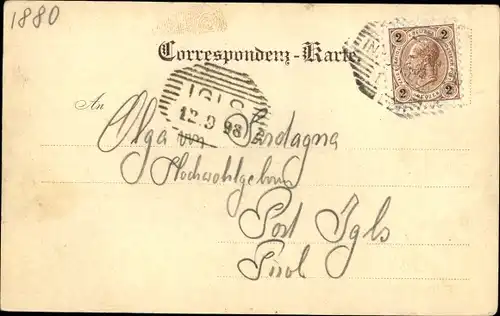 1880
Correspondenz-Karte.
2 2
2 2
IGLS
12.9.98
An
Olga von
Hochwohlgeborn
Post Igls
Tirol